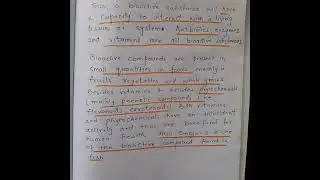 Such a bioactive substance will have
a capacity to interact with a living
tissue or systems. Antibiotics, enzymes
and vitamins are all bioactive substances
Bioactive compounds are present in
small quantities in foods mainly in
fruits, vegetables and whole grains
Besides vitamins it includes phytochemicals
(mainly phenolic compounds) like
flavonoids, carotenoids. Both vitamins
and phytochemicals have an antioxidant
activity and thus are beneficial for
human health. Also Omega-3 is one
of the bioactive compound found in
fish